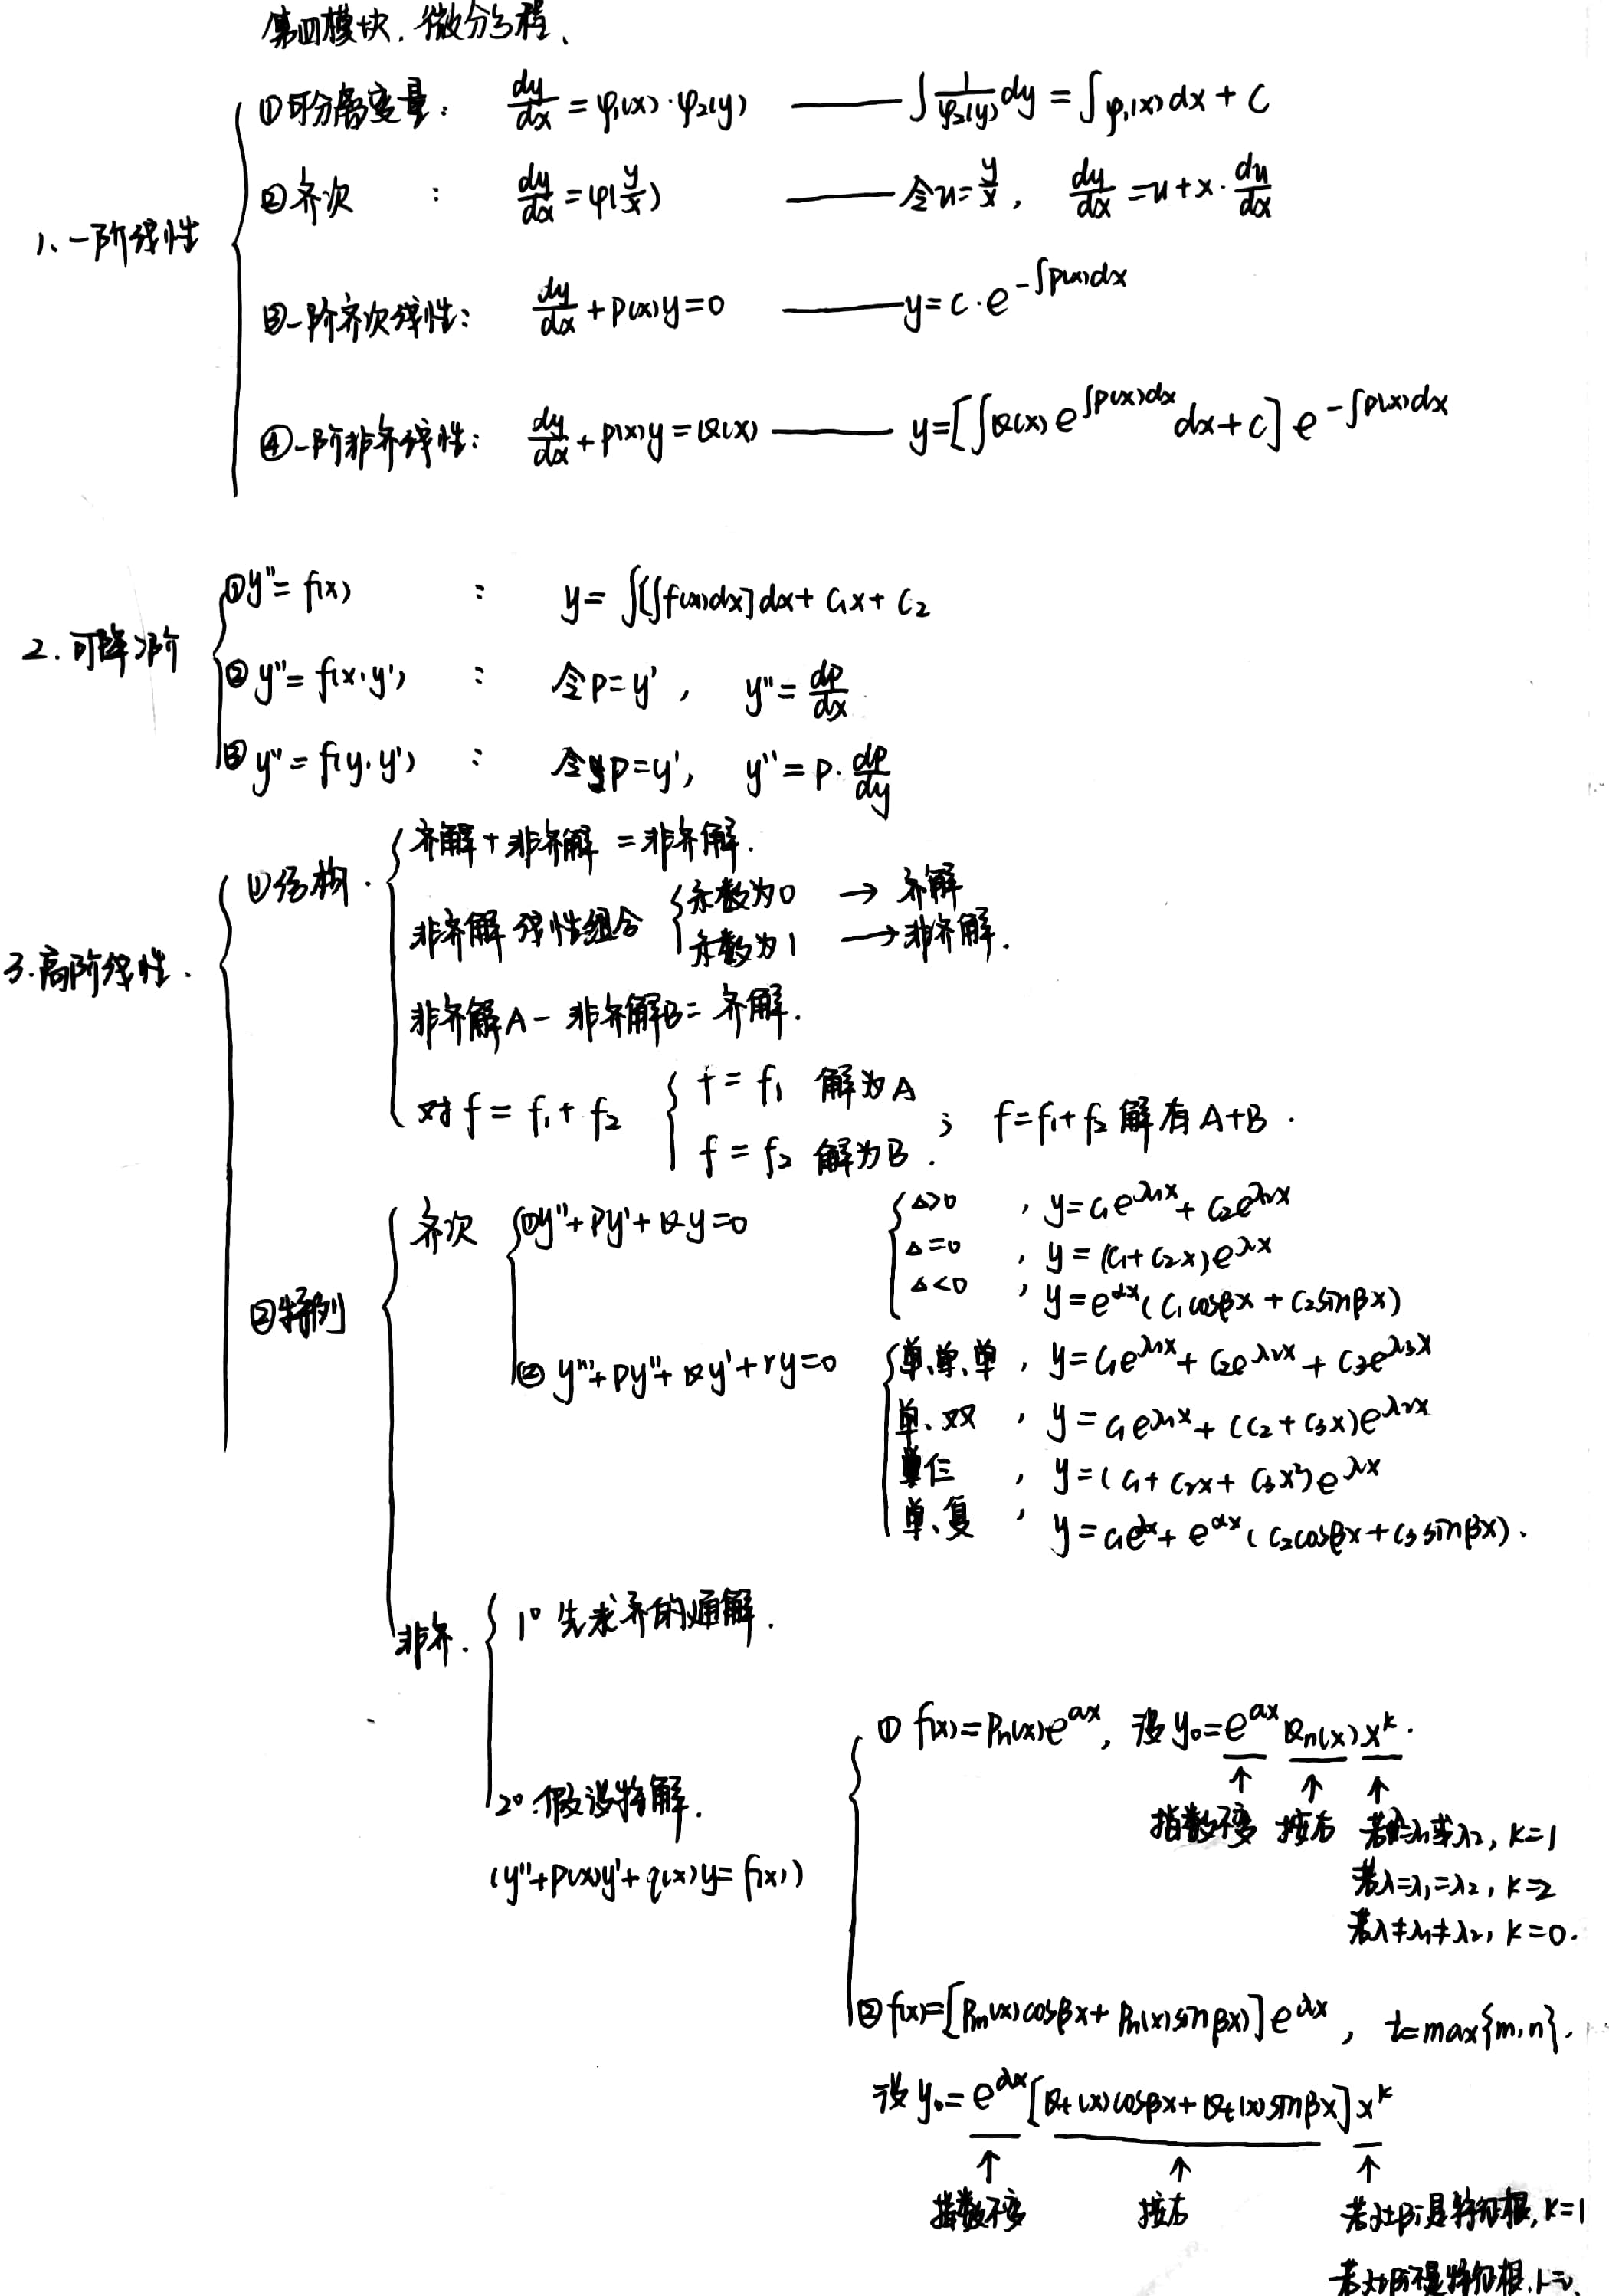 第四模块.微分方程、
1、一阶线性
①可分离变量: dy/dx = φ₁(x)·φ₂(y) —— ∫1/φ₂(y) dy = ∫φ₁(x)dx + C
②齐次 : dy/dx = φ(y/x) —— 令u=y/x, dy/dx = u+x·du/dx
③一阶齐次线性: dy/dx + p(x)y=0 —— y=C·e^(-∫p(x)dx)
④一阶非齐线性: dy/dx + p(x)y=Q(x) —— y=[∫Q(x)e^(∫p(x)dx)dx+C]e^(-∫p(x)dx)
2.可降阶
①y''=f(x) : y=∫[∫f(x)dx]dx+C₁x+C₂
②y''=f(x,y') : 令p=y', y''=dp/dx
③y''=f(y,y') : 令p=y', y''=p·dp/dy
3.高阶线性.
①结构.
齐解+非齐解=非齐解.
非齐解 线性组合
系数为0 → 齐解
系数为1 → 非齐解.
非齐解A-非齐解B=齐解.
对f=f₁+f₂
f=f₁ 解为A
f=f₂ 解为B.
; f=f₁+f₂解有A+B.
②特例
齐次
①y''+Py'+Qy=0
Δ>0 , y=C₁e^(λ₁x)+C₂e^(λ₂x)
Δ=0 , y=(C₁+C₂x)e^(λx)
Δ<0 , y=e^(αx)(C₁cosβx+C₂sinβx)
② y'''+Py''+Qy'+ry=0
单.单.单 , y=C₁e^(λ₁x)+C₂e^(λ₂x)+C₃e^(λ₃x)
单、双 , y=C₁e^(λ₁x)+(C₂+C₃x)e^(λ₂x)
三 , y=(C₁+C₂x+C₃x²)e^(λx)
单、复 , y=C₁e^(λx)+e^(αx)(C₂cosβx+C₃sinβx).
非齐.
1° 先求齐的通解.
2°.假设特解.
(y''+p(x)y'+q(x)y=f(x))
① f(x)=Pn(x)e^(αx), 设y₀=e^(αx)Qn(x)x^k.
↑ ↑ ↑
指数不变 按右 若λ=λ₁或λ₂, k=1
若λ=λ₁=λ₂, k=2
若λ≠λ₁≠λ₂, k=0.
②f(x)=[Pm(x)cosβx+Pn(x)sinβx]e^(αx), t=max{m,n}.
设y₀=e^(αx)[Qt(x)cosβx+Qt(x)sinβx]x^k
↑ ↑ ↑
指数不变 按右 若α±βi是特征根, k=1
若α±βi不是特征根.k=0.